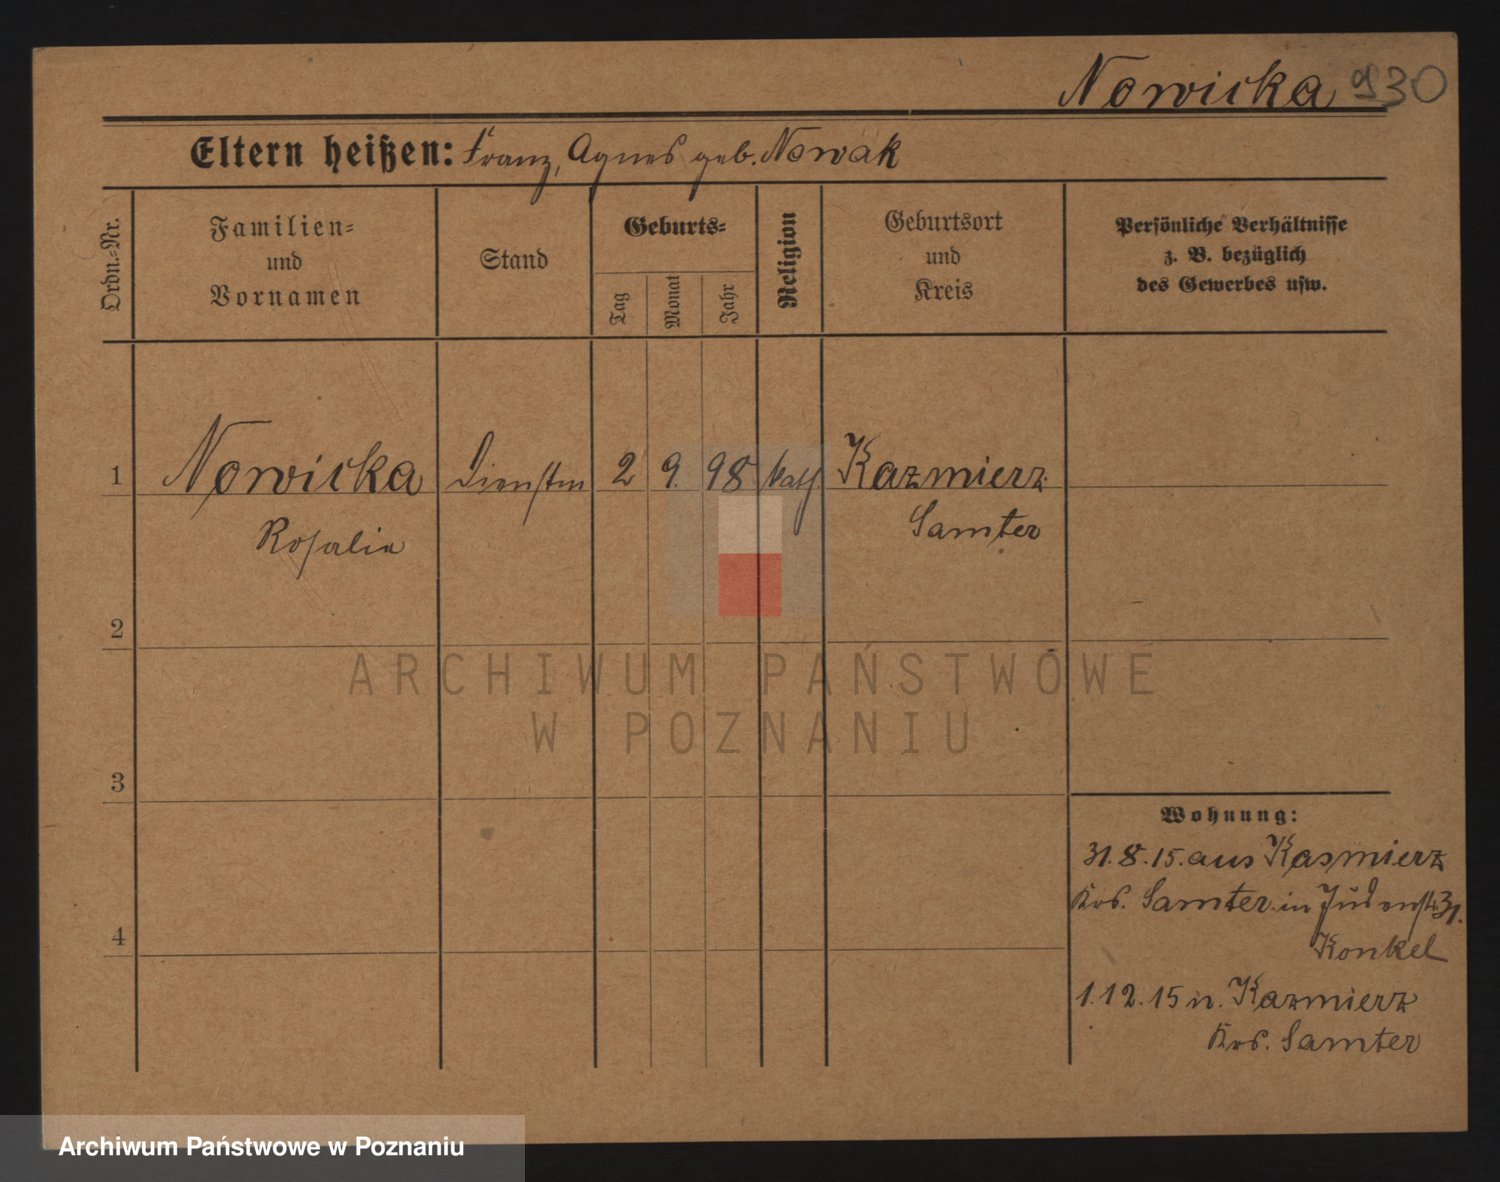 Nowicka 930
Eltern heißen: Franz, Agnes geb. Nowak
Ordn.=Nr.
Familien=
und
Vornamen
Stand
Geburts=
Tag
Monat
Jahr
Religion
Geburtsort
und
Kreis
Persönliche Verhältnisse
z. B. bezüglich
des Gewerbes usw.
1 Nowicka Dienstm 2 9. 98 kath Kazmierz
Rosalie Samter
2
3
4
Wohnung:
31.8.15. aus Kasmierz
Krs. Samter in Judenstr. 31.
Konkel
1.12.15 n. Kazmierz
Krs. Samter
ARCHIWUM PAŃSTWOWE
W POZNANIU
Archiwum Państwowe w Poznaniu